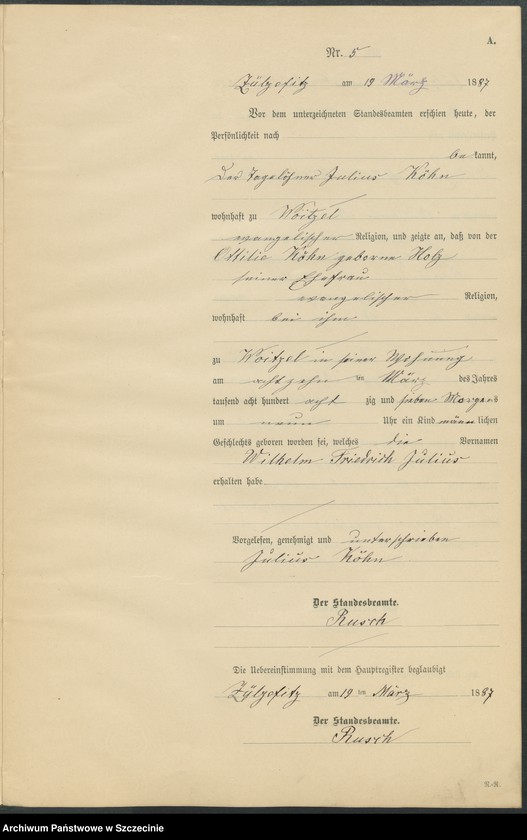 A.
Nr. 5
Zülzefitz am 19 März 1887
Vor dem unterzeichneten Standesbeamten erschien heute, der
Persönlichkeit nach
be kannt,
Der Tagelöhner Julius Köhn
wohnhaft zu Woitzel
evangelischer Religion, und zeigte an, daß von der
Ottilie Köhn geborne Holz
seiner Ehefrau
evangelischer Religion,
wohnhaft bei ihm
zu Woitzel in seiner Wohnung
am achtzehn ten März des Jahres
tausend acht hundert acht zig und sieben Morgens
um neun Uhr ein Kind männ lichen
Geschlechts geboren worden sei, welches die Vornamen
Wilhelm Friedrich Julius
erhalten habe
Vorgelesen, genehmigt und unterschrieben
Julius Köhn
Der Standesbeamte.
Rusch
Die Uebereinstimmung mit dem Hauptregister beglaubigt
Zülzefitz am 19 ten März 1887
Der Standesbeamte.
Rusch
R.-R.
Archiwum Państwowe w Szczecinie